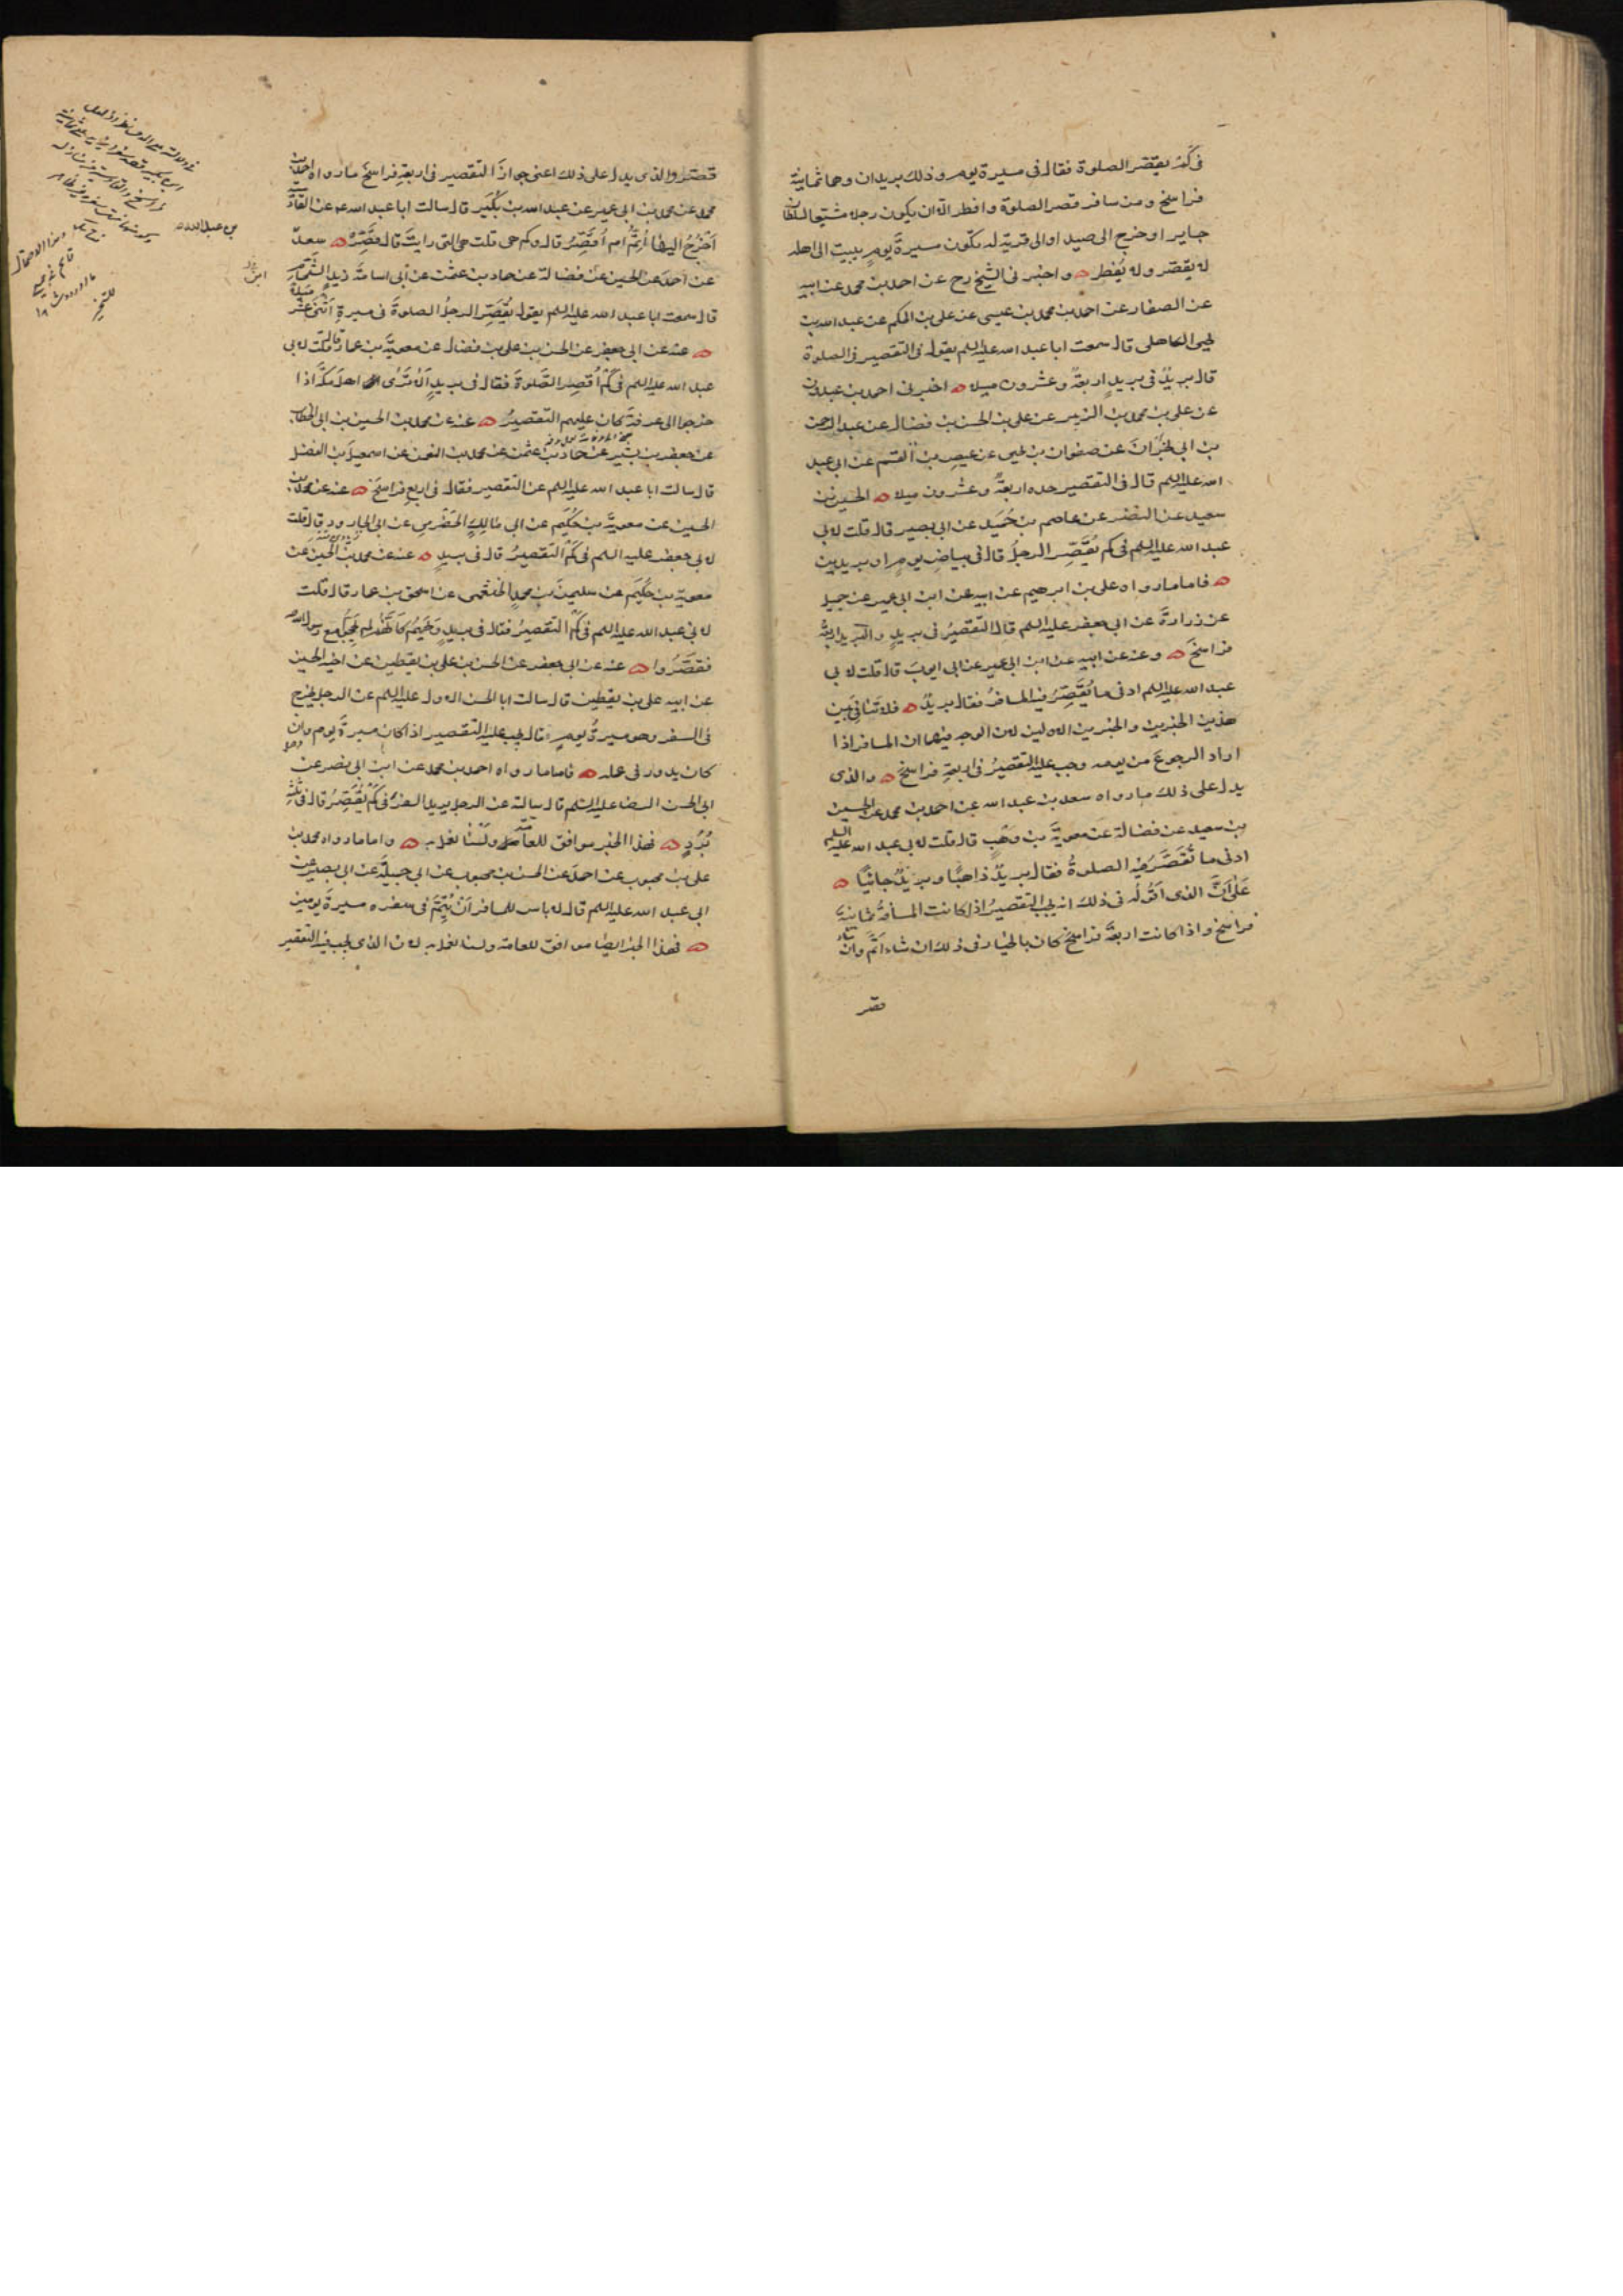 فى كم يقصر الصلوة فقال فى مسيرة يوم وذلك بريدان وهما ثمانية
فراسخ ومن سافر قصر الصلوة وافطر الا ان يكون رجلا مشيعا لسلطان
جاير او خرج الى صيد او الى قرية له يكون مسيرة يوم يبيت الى اهله
لا يقصر ولا يفطر ه واخبرنى الشيخ رح عن احمد بن محمد عن ابيه
عن الصفار عن احمد بن محمد بن عيسى عن على بن الحكم عن عبد الله بن
يحيى الكاهلى قال سمعت ابا عبد الله عليه السلم يقول فى التقصير فى الصلوة
قال بريدٌ فى بريدٍ اربعةٌ وعشرون ميلا ه اخبرنى احمد بن عبدون
عن على بن محمد بن الزبير عن على بن الحسن بن فضال عن عبد الرحمن
بن ابى نجران عن صفوان بن يحيى عن عيص بن القسم عن ابى عبد
الله عليه السلم قال فى التقصير حده اربعةٌ وعشرون ميلا ه الحسين بن
سعيد عن النضر عن عاصم بن حُمَيد عن ابى بصير قال قلت لابى
عبد الله عليه السلم فى كم يُقَصِّر الرجلُ قال فى بياضِ يومٍ او بريدين
ه فاما ما رواه على بن ابرهيم عن ابيه عن ابن ابى عمير عن جميل
عن زرارةَ عن ابى جعفر عليه السلم قال التقصيرُ فى بريدٍ والبريد اربعة
فراسخَ ه وعنه عن ابيه عن ابن ابى عمير عن ابى ايوبَ قال قلت لابى
عبد الله عليه السلم ادنى ما يُقَصِّرُ فيه المسافرُ فقال بريدٌ ه فلا تنافى بين
هذين الخبرين والخبرين الاولين لان الوجه فيهما ان المسافر اذا
اراد الرجوعَ من يومه وجب عليه التقصيرُ فى اربعةِ فراسخَ ه والذى
يدل على ذلك ما رواه سعد بن عبد الله عن احمد بن محمد عن الحسين
بن سعيد عن فضالة عن معويةَ بن وَهْبٍ قال قلت لابى عبد الله عليه السلم
ادنى ما تُقَصَّرُ فيه الصلوةُ فقال بريدٌ ذاهبًا وبريدٌ جائيًا ه
عَلى اَنَّ الذى اَقُولُه فى ذلك انه يجب التقصيرُ اذا كانت المسافةُ ثمانيةَ
فراسخ واذا كانت اربعةَ فراسخَ كان بالخيار فى ذلك ان شاء اتَمَّ وان شاء
قصر
قصّر والذى يدل على ذلك اعنى جوازَ التقصير فى اربعةِ فراسخَ ما رواه احمد بن
محمد عن محمد بن ابى عمير عن عبد الله بن بُكَير قال سالت ابا عبد الله عن القادسية
اَخْرُجُ اليها أُتِمُّ ام أُقَصِّرُ قال وكم هى قلت هى التى رايتَ قال قَصِّرْ ه سعد
عن احمدَ عن الحسين عن فضالة عن حماد بن عثمن عن ابى اسامةَ زيدٍ الشحّام
قال سمعت ابا عبد الله عليه السلم يقول يُقَصِّر الرجلُ الصلوةَ فى مسيرةِ اثنى عشر ميلا
ه عنه عن ابى جعفر عن الحسن بن على بن فضال عن معويةَ بن عمار قال قلت لابى
عبد الله عليه السلم فى كم أُقصِر الصلوةَ فقال فى بريدٍ اَلا تَرى اهلَ مكةَ اذا
خرجوا الى عرفةَ كان عليهم التقصيرُ ه عنه عن محمد بن الحسين بن ابى الخطاب
عن جعفر بن بشير عن حماد بن عثمن عن محمد بن النعمن عن اسمعيلَ بن الفضل
قال سالت ابا عبد الله عليه السلم عن التقصير فقال فى اربعِ فراسخَ ه عنه عن محمد بن
الحسين عن معويةَ بن حُكَيم عن ابى مالكٍ الحضرمى عن ابى الجارود قال قلت
لابى جعفر عليه السلم فى كم التقصيرُ قال فى بريدٍ ه عنه عن محمد بن الحسين عن
معوية بن حُكَيم عن سليمنَ بن محمدٍ الخثعمى عن اسحق بن عمار قال قلت
لابى عبد الله عليه السلم فى كم التقصيرُ فقال فى بريدٍ وَيْحَهُم كانهم لم يحجوا مع رسول الله
فقَصَّرُوا ه عنه عن ابى جعفر عن الحسن بن على بن يقطين عن اخيه الحسين
عن ابيه على بن يقطين قال سالت ابا الحسن الاول عليه السلم عن الرجل يخرج
فى السفر وهو مسيرةُ يومٍ قال يجب عليه التقصير اذا كان مسيرةَ يوم وان
كان يدور فى عمله ه فاما ما رواه احمد بن محمد عن ابن ابى نصر عن
ابى الحسن الرضا عليه السّلم قال سالته عن الرجل يريد السفرَ فى كم يُقَصِّرُ قال فى ثلثةِ
بُرُدٍ ه فهذا الخبر موافق للعامّة ولَسْنا نعمل به ه واما ما رواه محمد بن
على بن محبوب عن احمدَ عن الحسن بن محبوب عن ابى جميلةَ عن ابى بصير عن
ابى عبد الله عليه السلم قال لا باس للمسافر اَن يُتِمَّ فى سفره مسيرةَ يومين
ه فهذا الخبر ايضا موافق للعامة ولسنا نعمل به لان الذى يجب فيه التقصير